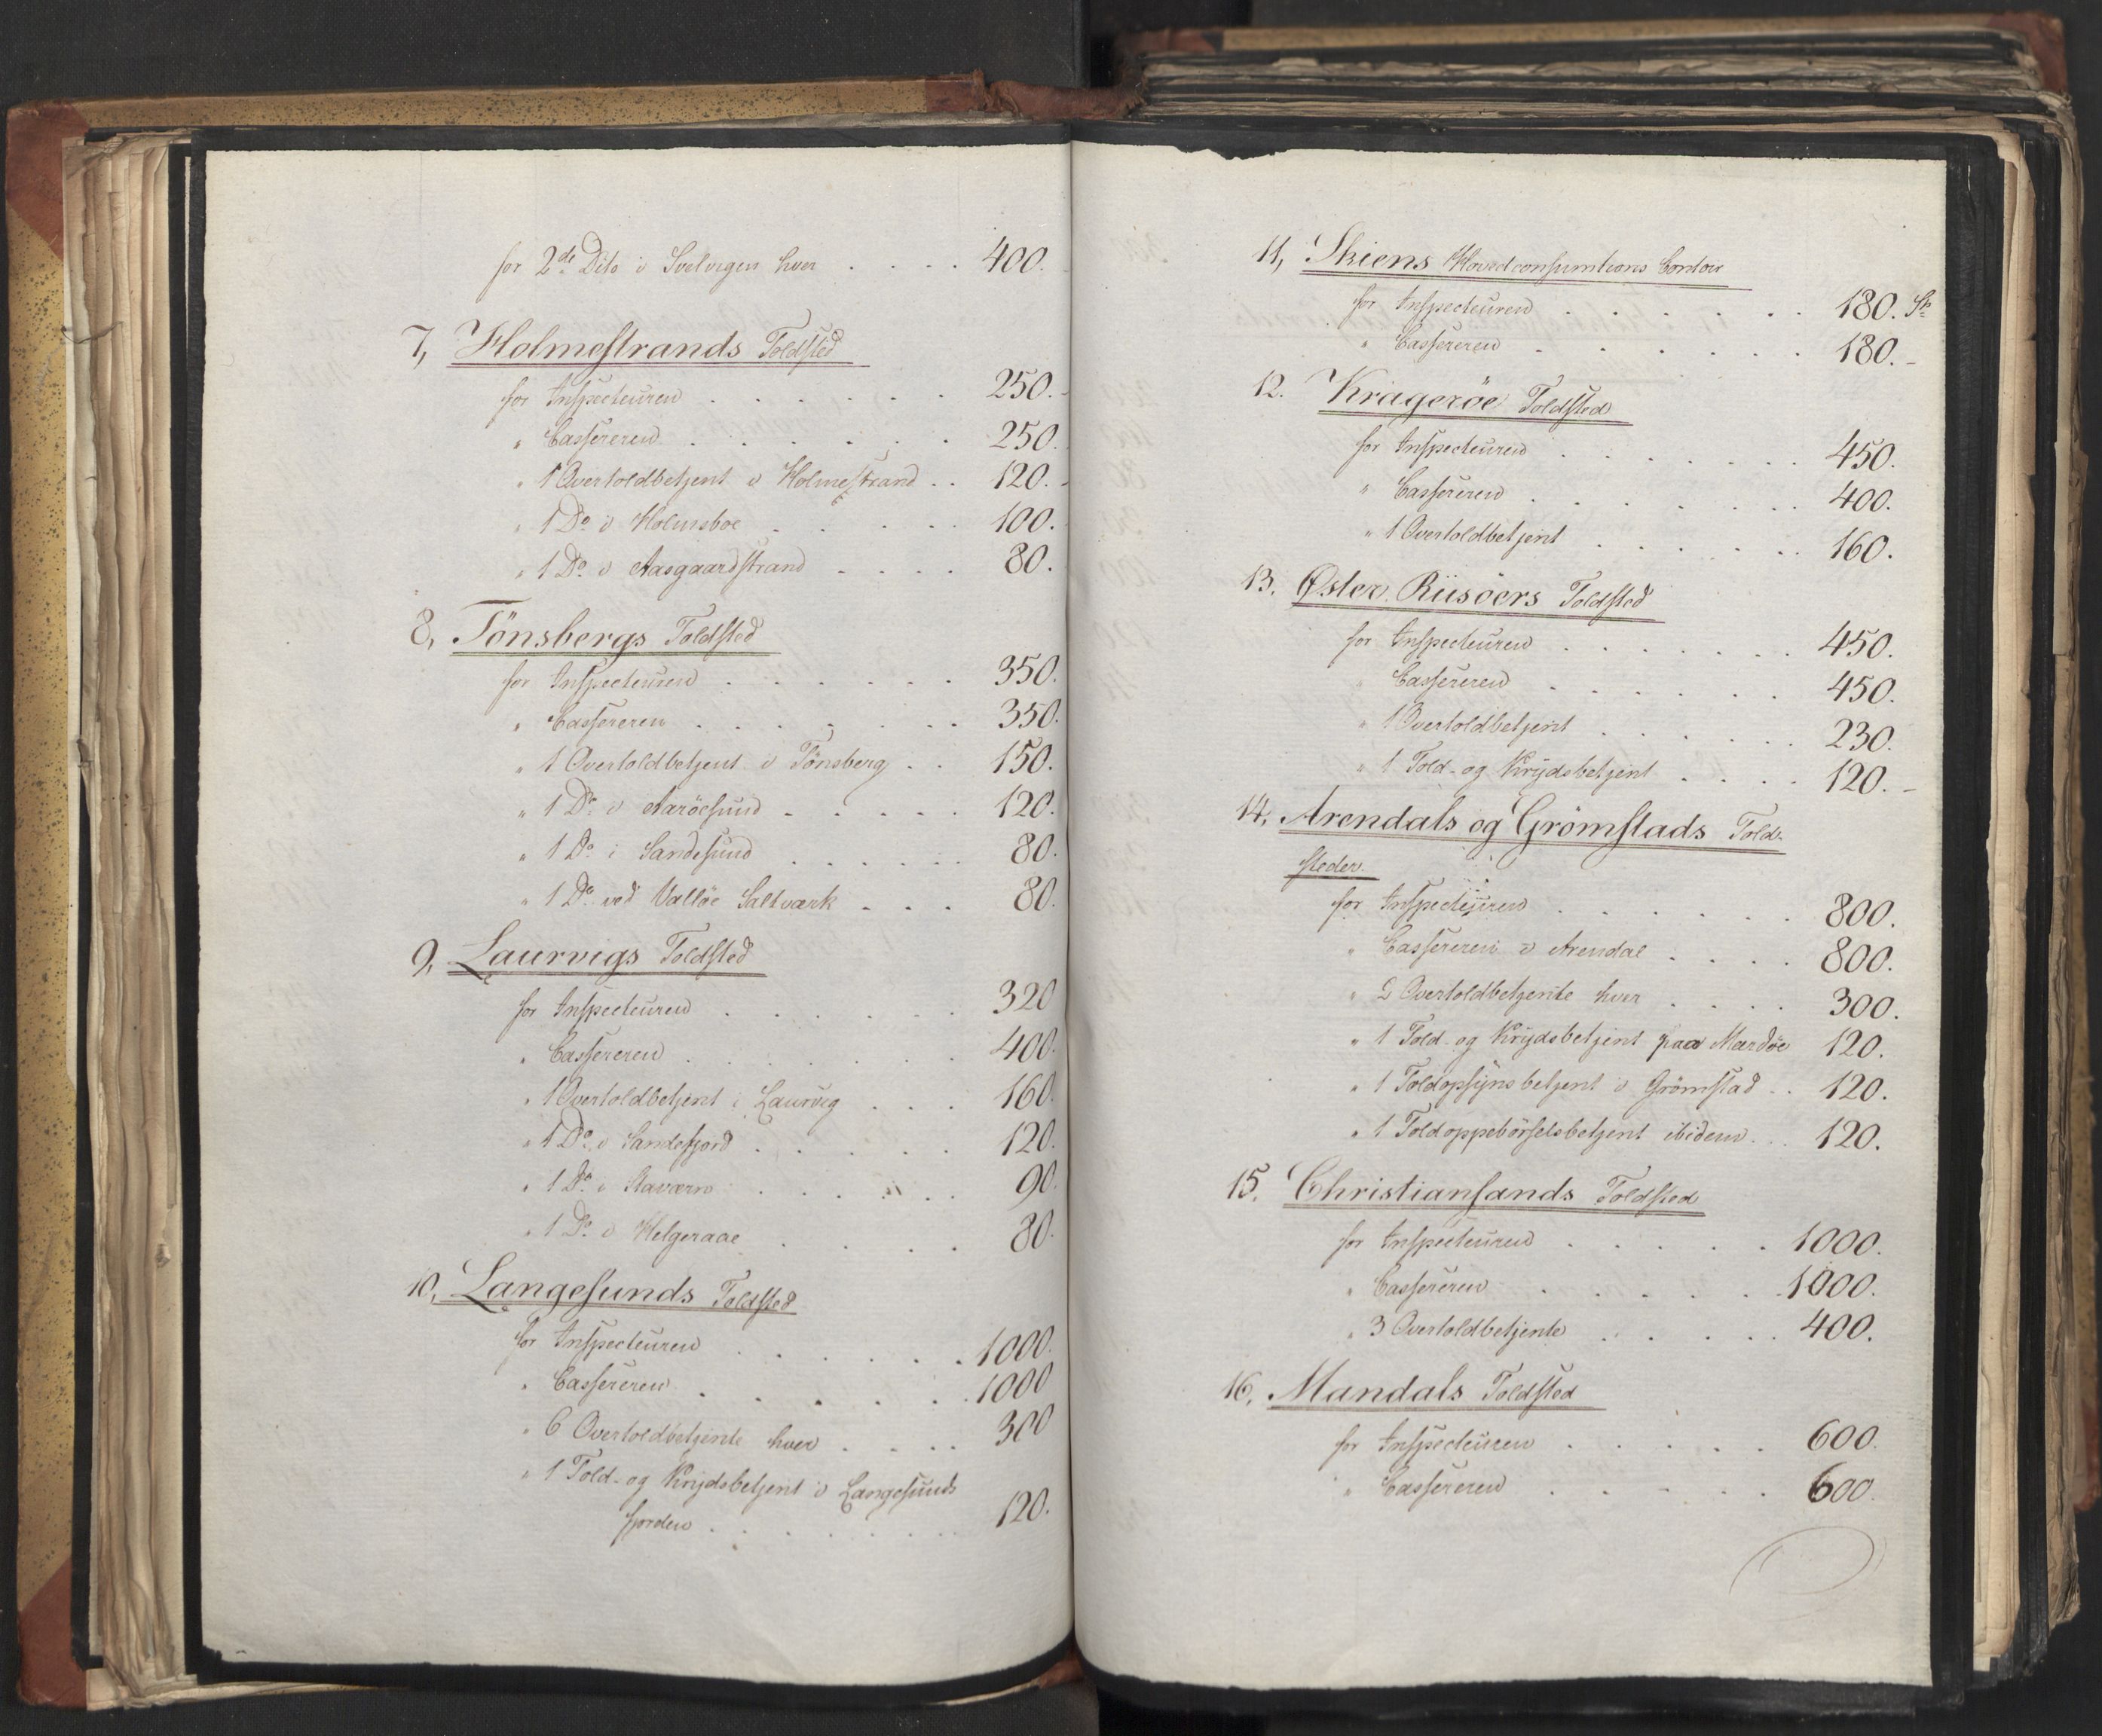 for 2de Dito i Svelvigen hver . . . . 400.
7, Holmestrands Toldsted
for Inspecteuren . . . . . . 250.
" Cassereren . . . . . . 250.
" 1 Overtoldbetjent i Holmestrand . . 120.
" 1 Do i Holmsboe . . . . . 100.
" 1 Do i Aasgaardstrand . . . . 80.
8, Tönsbergs Toldsted
for Inspecteuren . . . . . . 350.
" Cassereren . . . . . . 350.
" 1 Overtoldbetjent i Tönsberg . . 150.
" 1 Do i Aaröesund . . . . . 120.
" 1 Do i Sandesund . . . . . . 80.
" 1 Do ved Vallöe Saltværk . . . 80.
9, Laurvigs Toldsted
for Inspecteuren . . . . . . 320
" Cassereren . . . . . . 400.
" 1 Overtoldbetjent i Laurvig . . . 160.
" 1 Do i Sandefjord . . . . . 120.
" 1 Do i Staværn . . . . . 90.
" 1 Do i Helgeraae . . . . 80.
10, Langesunds Toldsted
for Inspecteuren . . . . . . 1000.
" Cassereren . . . . . 1000
" 6 Overtoldbetjente hver . . . . 300
" 1 Told- og Krydsbetjent i Langesunds
fjorden . . . . . . . 120.
11, Skiens Hovedconsumtions Contoir
for Inspecteuren . . . . . . 180. Sp
" Cassereren . . . . . . 180. -
12. Kragerøe Toldsted
for Inspecteuren . . . . . . 450.
" Cassereren . . . . . . 400.
" 1 Overtoldbetjent . . . . . 160.
13. Øster Riisöers Toldsted
for Inspecteuren . . . . . . 450.
" Cassereren . . . . . . 450.
" 1 Overtoldbetjent . . . . . . 230.
" 1 Told- og Krydsbetjent . . . . 120. -
14, Arendals og Grömstads Told-
steder
for Inspecteuren . . . . . . 800.
" Cassereren i Arendal . . . . 800.
" 2 Overtoldbetjente hver . . . . 300.
" 1 Told- og Krydsbetjent paa Mærdöe 120.
" 1 Toldopsynsbetjent i Grömstad . . 120.
" 1 Toldoppebörselsbetjent ibidem . . . 120.
15, Christiansands Toldsted
for Inspecteuren . . . . . 1000.
" Cassereren . . . . . 1000.
" 3 Overtoldbetjente . . . . . 400.
16, Mandals Toldsted
for Inspecteuren . . . . . 600.
" Cassereren . . . . . 600.